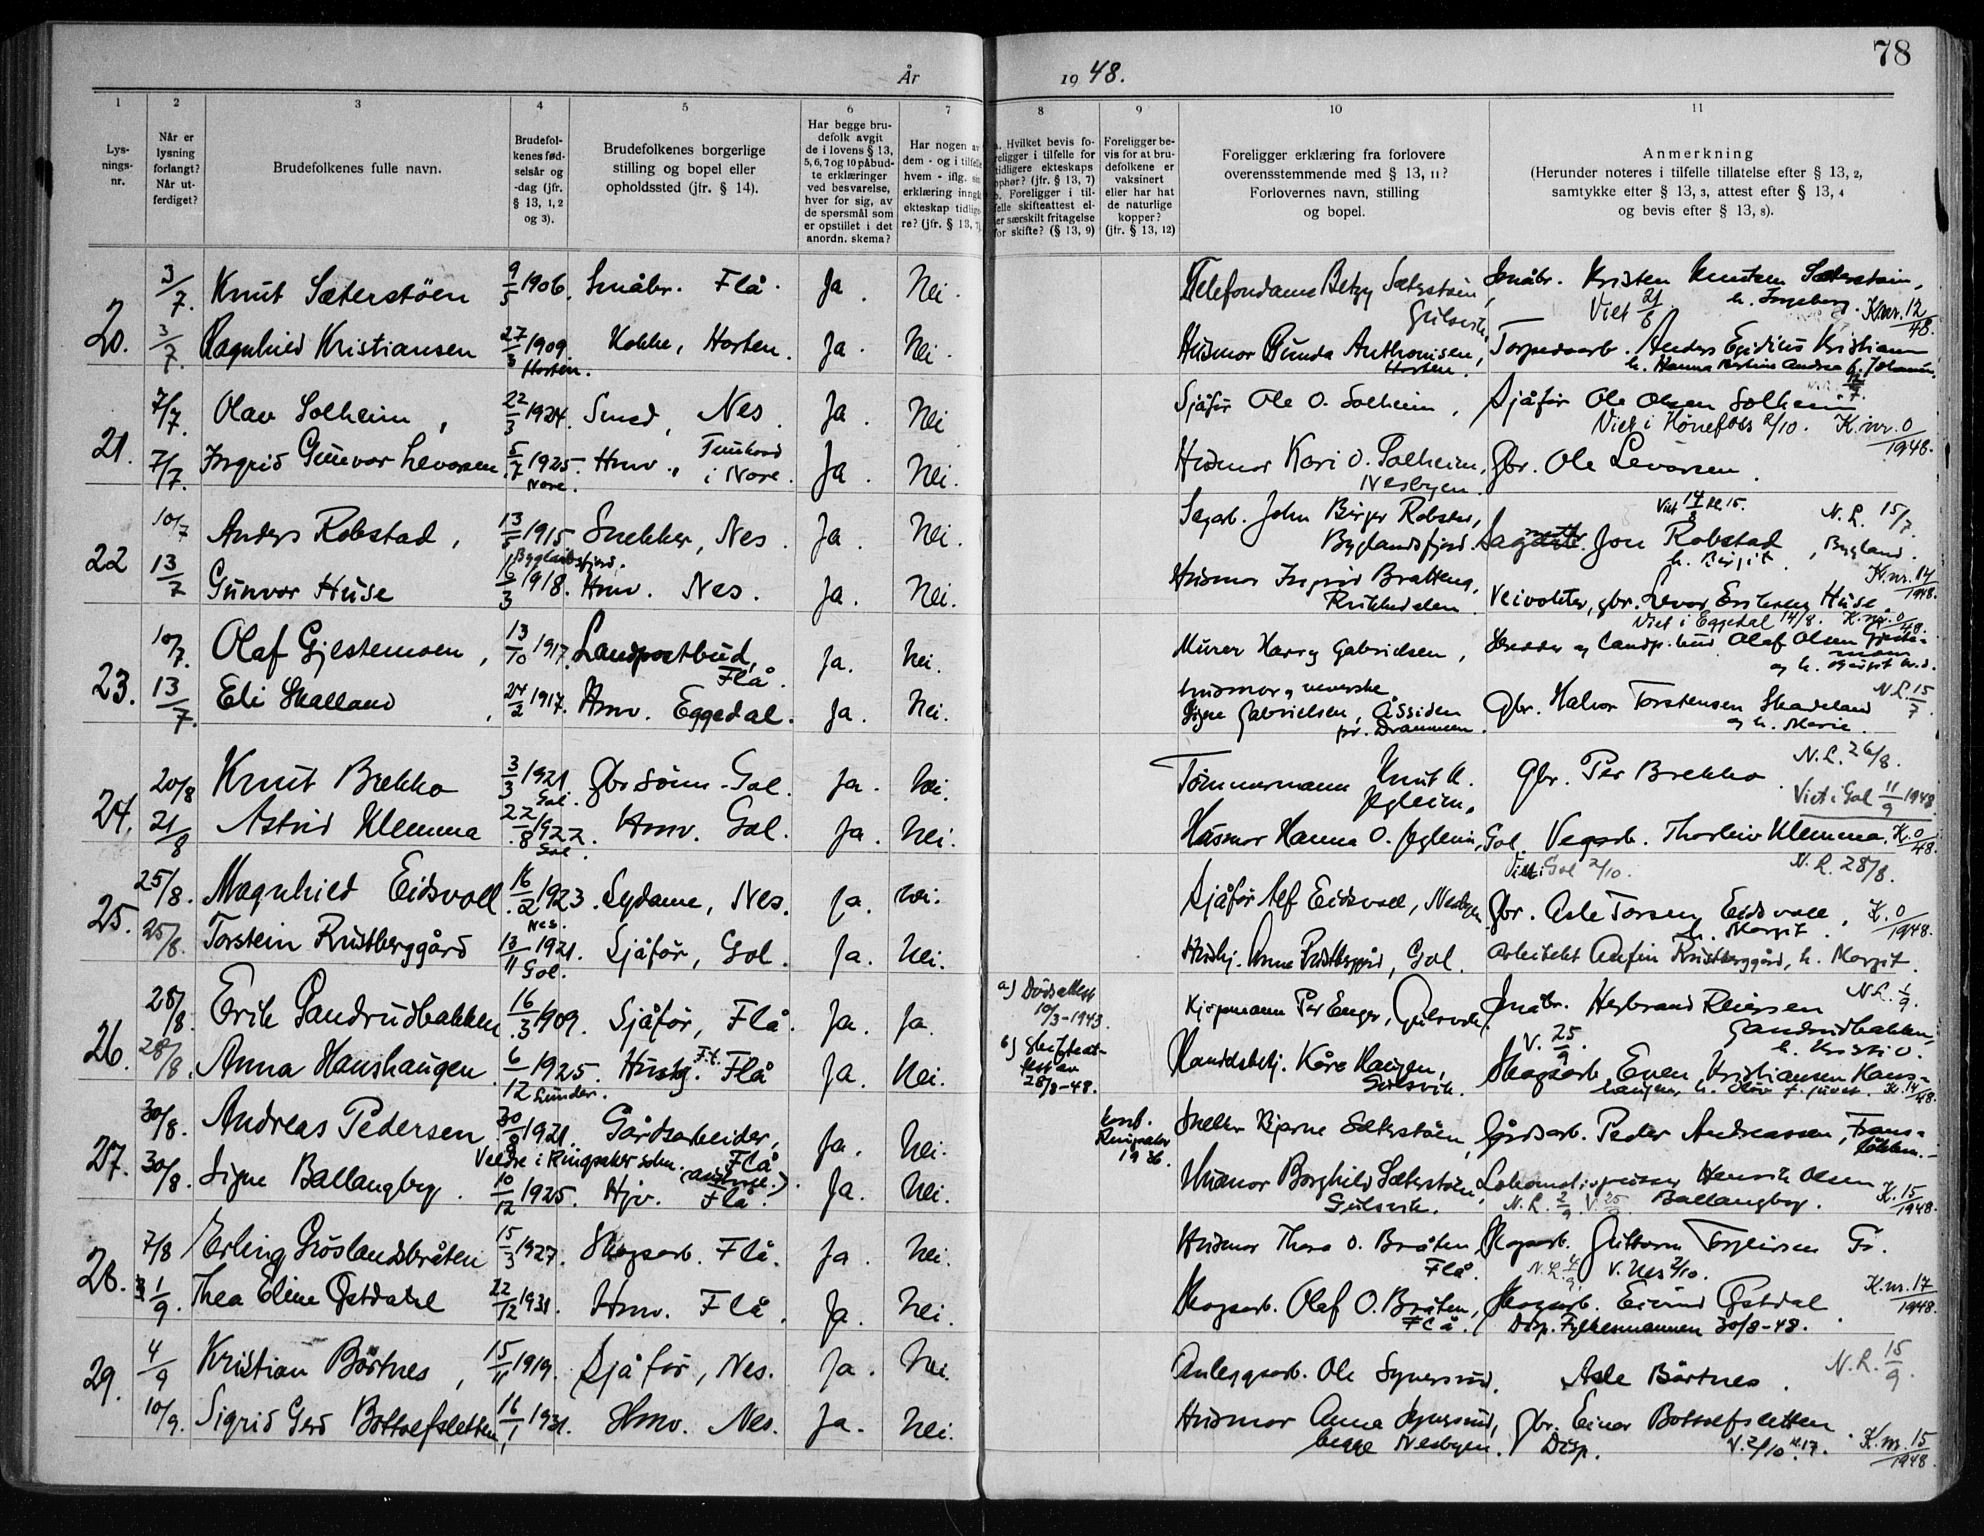 78
År 1948.
1 2 3 4 5 6 7 8 9 10 11
Lysningsnr.
Når er lysning forlangt? Når utferdiget?
Brudefolkenes fulle navn.
Brudefolkenes fødselsår og -dag (jfr. § 13, 1, 2 og 3).
Brudefolkenes borgerlige stilling og bopel eller opholdssted (jfr. § 14).
Har begge brudefolk avgit de i lovens § 13, 5, 6, 7 og 10 påbudte erklæringer ved besvarelse, hver for sig, av de spørsmål som er opstillet i det anordn. skema?
Har nogen av dem - og i tilfelle hvem - iflg. sin erklæring inngått ekteskap tidligere? (jfr. § 13, 7)
a. Hvilket bevis foreligger i tilfelle for tidligere ekteskaps ophør? (jfr. § 13, 7) b. Foreligger i tilfelle skifteattest eller særskilt fritagelse for skifte? (§ 13, 9)
Foreligger bevis for at brudefolkene er vaksinert eller har hat de naturlige kopper? (jfr. § 13, 12)
Foreligger erklæring fra forlovere overensstemmende med § 13, 11? Forlovernes navn, stilling og bopel.
Anmerkning (Herunder noteres i tilfelle tillatelse efter § 13, 2, samtykke efter § 13, 3, attest efter § 13, 4 og bevis efter § 13, 8).
20. 3/7. Knut Sæterstöen 9/5 1906. Småbr. Flå. Ja. Nei. Telefondame Betzy Sæterstöin, Gulsvik, Småbr. Kristen Knutsen Sæterstöin, h. Ingeborg. Viet 21/8 K.nr. 12/48.
3/7 Ragnhild Kristiansen 27/3 1909. Horten. Kokke, Horten. Ja. Nei. Husmor Gunda Anthonisen, Horten. Torpedoarb. Anders Egidius Kristiansen
21. 7/7. Olav Solheim, 22/3 1924. Smed, Nes. Ja. Nei Sjåför Ole O. Solheim, Sjåför Ole Olsen Solheim Viet i Hönefoss 2/10. K.nr. 0/1948.
7/7. Ingrid Gunvor Levorsen 5/7 1925. Nore. Hmv., i Nore. Ja. Nei. Husmor Kari O. Solheim, Nesbyen. Gbr. Ole Levorsen.
22 10/7 Anders Robstad, 13/5 1915 Byglandsfjord. Snekker, Nes. Ja. Nei. Sagarb. John Birger Robstad, Byglandsfjord. Jon Robstad h. Birgit, Bygland. Viet 14/8 kl 15. N.L. 15/7.
13/7 Gunvor Huse 3/3 1918. Hmv. Nes. Ja. Nei. Husmor Ingrid Bratteng, Veivokter, gbr. Levor Eriksen Huse. K.nr. 14/1948.
23. 10/7. Olaf Gjestemoen, 13/10 1917. Landpostbud, Flå. Ja. Nei. Murer Harry Gabrielsen, Olaf Olsen Viet i Eggedal 14/8. K.nr. 0/48.
13/7. Eli Skalland, 24/2 1917. Hmv. Eggedal. Ja. Nei. Husmor Signe Gabrielsen, Åssiden pr. Drammen. Gbr. Halvor Torstensen Skadeland og h. Marie. N.L. 15/7.
24. 20/8 Knut Brekko 3/3 1921. Gol. Gbr sönn. Gol. Ja. Nei. Tömmermann Knut K. Jegleim, Gbr. Per Brekko. N.L. 26/8.
21/8 Astrid Klemma 22/8 1922. Gol. Hmv. Gol. Ja. Nei. Husmor Hanna O. Jegleim, Gol. Vegarb. Thorleiv Klemma. Viet i Gol 11/9 1948 K. 0/48.
25. 25/8. Magnhild Eidsvoll 16/2 1923. Nes. Sydame, Nes. Ja. Nei. Sjåför Alf Eidsvoll, Nesbyen Gbr. Asle Torsen Eidsvoll, h. Margit. Viet i Gol 2/10. N.L. 28/8. K. 0/1948.
25/8. Torstein Rustberggård 13/11 1921. Gol. Sjåför, Gol. Ja. Nei. Anne Rustberggård, Gol. Arbeider Anfin Rustberggård, h. Margit.
26. 28/8. Erik Sandrudbakken 16/3 1909. Sjåför, Flå. Ja. Ja. a) Dödsattest 10/3-1943. Kjöpmann Per Enger, Gulsvik, Småbr. Herbrand Reiersen Sandrudbakken, h. Kristi O. N.L. 1/9.
28/8. Anna Hanshaugen. 6/12 1925. Hushj. F.t. Flå Ja. Nei. b) Skifteattest av 28/8-48. Handelsbetj. Kåre Haugen, Gulsvik. Skogsarb. Even Kristiansen Hanshaugen, V. 25/9. K. 14/48.
27. 30/8. Andreas Pedersen 30/8 1921. Veldre i Ringsaker. Gårdsarbeider, Flå Ja. Nei. konf. Ringsaker 1936. Snekker Bjarne Sæterstöen, Gårdsarb. Peder Andreassen,
30/8. Signe Ballangby. 10/12 1925. Hjv. Flå. Ja. Nei. Husmor Borghild Sæterstöen, Gulsvik. Lokomotivpusser Henrik Olsen Ballangby. N.L. 2/9. V. 25/9 K. 15/1948.
28. 7/8 Erling Gröslandsbråten 15/3 1927. Skogsarb. Flå. Ja. Nei. Husmor Thora O. Bråten, Flå. Skogsarb. Guttorm Torgeirsen Gr. N.L. 4/9. V. Nes 2/10.
1/9. Thea Eline Östdahl 22/12 1931. Hmv. Flå. Ja. Nei. Skogsarb. Olaf O. Bråten, Flå. Skogsarb. Eivind Östdal. Disp. Fylkesmannen 30/8-48. K.nr. 17/1948.
29. 4/9 Kristian Börtnes, 15/11 1919. Sjåför, Nes. Ja. Nei. Anleggsarb. Ole Synersrud, Asle Börtnes. N.L. 15/9.
10/9. Sigrid Gerd Bottolfsletten, 16/1 1931. Hmv. Nes. Ja. Nei. Husmor Anna Synersrud, begge Nesbyen. Gbr. Einar Bottolfsletten. Disp. V. 2/10 kl. 17. K.nr. 15/1948.